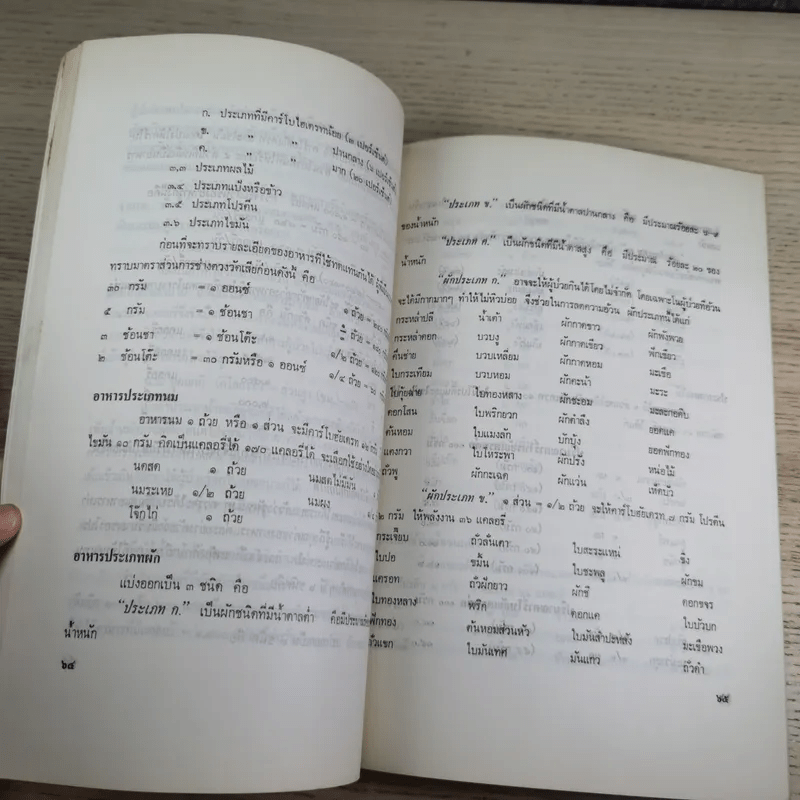 ก. ประเภทที่มีคาร์โบไฮเดรทน้อย (๓ เปอร์เซ็นต์)
ข. ” ” ปานกลาง
ค. ” ” มาก (๒๐ เปอร์เซ็นต์)
๓.๓ ประเภทผลไม้
๓.๔ ประเภทแป้งหรือข้าว
๓.๕ ประเภทโปรตีน
๓.๖ ประเภทไขมัน
ก่อนที่จะทราบรายละเอียดของอาหารที่ใช้ทดแทนกันได้
ทราบมาตราส่วนการชั่งตวงวัดเสียก่อนดังนี้ คือ
๓๐ กรัม = ๑ ออนซ์ ๑ ถ้วย =
๕ กรัม = ๑ ช้อนชา ถ้วย =
๓ ช้อนชา = ๑ ช้อนโต๊ะ ๑/๒ ถ้วย =
๒ ช้อนโต๊ะ = ๓๐ กรัมหรือ ๑ ออนซ์ ๑/๔ ถ้วย =
อาหารประเภทนม
อาหารนม ๑ ถ้วย หรือ ๑ ส่วน จะมีคาร์โบฮัยเดรท ๑๒ กรัม
ไขมัน ๑๐ กรัม คิดเป็นแคลอรี่ได้ ๑๗๐ แคลอรี่ จะเลือกใช้อย่างใด
นมสด ๑ ถ้วย นมสดไม่มีมัน
นมระเหย ๑/๒ ถ้วย นมผง
โจ๊กไก่ ๑ ถ้วย
อาหารประเภทผัก
แบ่งออกเป็น ๓ ชนิด คือ
“ประเภท ก.” เป็นผักชนิดที่มีน้ำตาลต่ำ คือมีประมาณ
น้ำหนัก
๖๔
“ประเภท ข.” เป็นผักชนิดที่มีน้ำตาลปานกลาง คือ มีประมาณร้อยละ
ของน้ำหนัก
“ประเภท ค.” เป็นผักชนิดที่มีน้ำตาลสูง คือ มีประมาณ ร้อยละ ๒๐ ของ
น้ำหนัก
“ผักประเภท ก.” อาจจะให้ผู้ป่วยกินได้โดยไม่จำกัด โดยเฉพาะในผู้ป่วยที่อ้วน
จะได้มีกากมากๆ ทำให้ไม่หิวบ่อย จึงช่วยในการลดความอ้วน ผักประเภทนี้ได้แก่
กระหล่ำปลี น้ำเต้า ผักกาดขาว ผักพังพวย
กระหล่ำดอก บวบงู ผักกาดเขียว ฟักเขียว
คื่นช่าย บวบเหลี่ยม ผักกาดหอม มะเขือ
ใบกระเทียม บวบหอม ผักคะน้า มะระ
ใบกุ้ยช่าย ใบทองหลาง ผักชะอม มะละกอดิบ
ดอกโสน ใบพริกยวก ผักตำลึง ยอดแค
ต้นหอม ใบแมงลัก ผักบุ้ง ยอดฟักทอง
แตงกวา ใบโหระพา ผักปรัง หน่อไม้
ถั่วพู ผักกะเฉด ผักแว่น เห็ดบัว
“ผักประเภท ข.” ๑ ส่วน = ๑/๒ ถ้วย จะให้คาร์โบฮัยเดรท ๗ กรัม โปรตีน
๒ กรัม ให้พลังงาน ๓๖ แคลอรี่
กระเจี๊ยบ ถั่วลันเตา ใบสะระแหน่ ขิง
ใบปอ ขมิ้น ใบชะพลู ผักขม
แครอท ถั่วฝักยาว ผักชี ดอกขจร
ใบทองหลาง พริก ดอกแค ใบบัวบก
ฟักทอง ต้นหอมส่วนหัว ใบมันสำปะหลัง มะเขือพวง
ถั่วแขก ใบมันเทศ มันแกว ถั่วดำ
๖๕